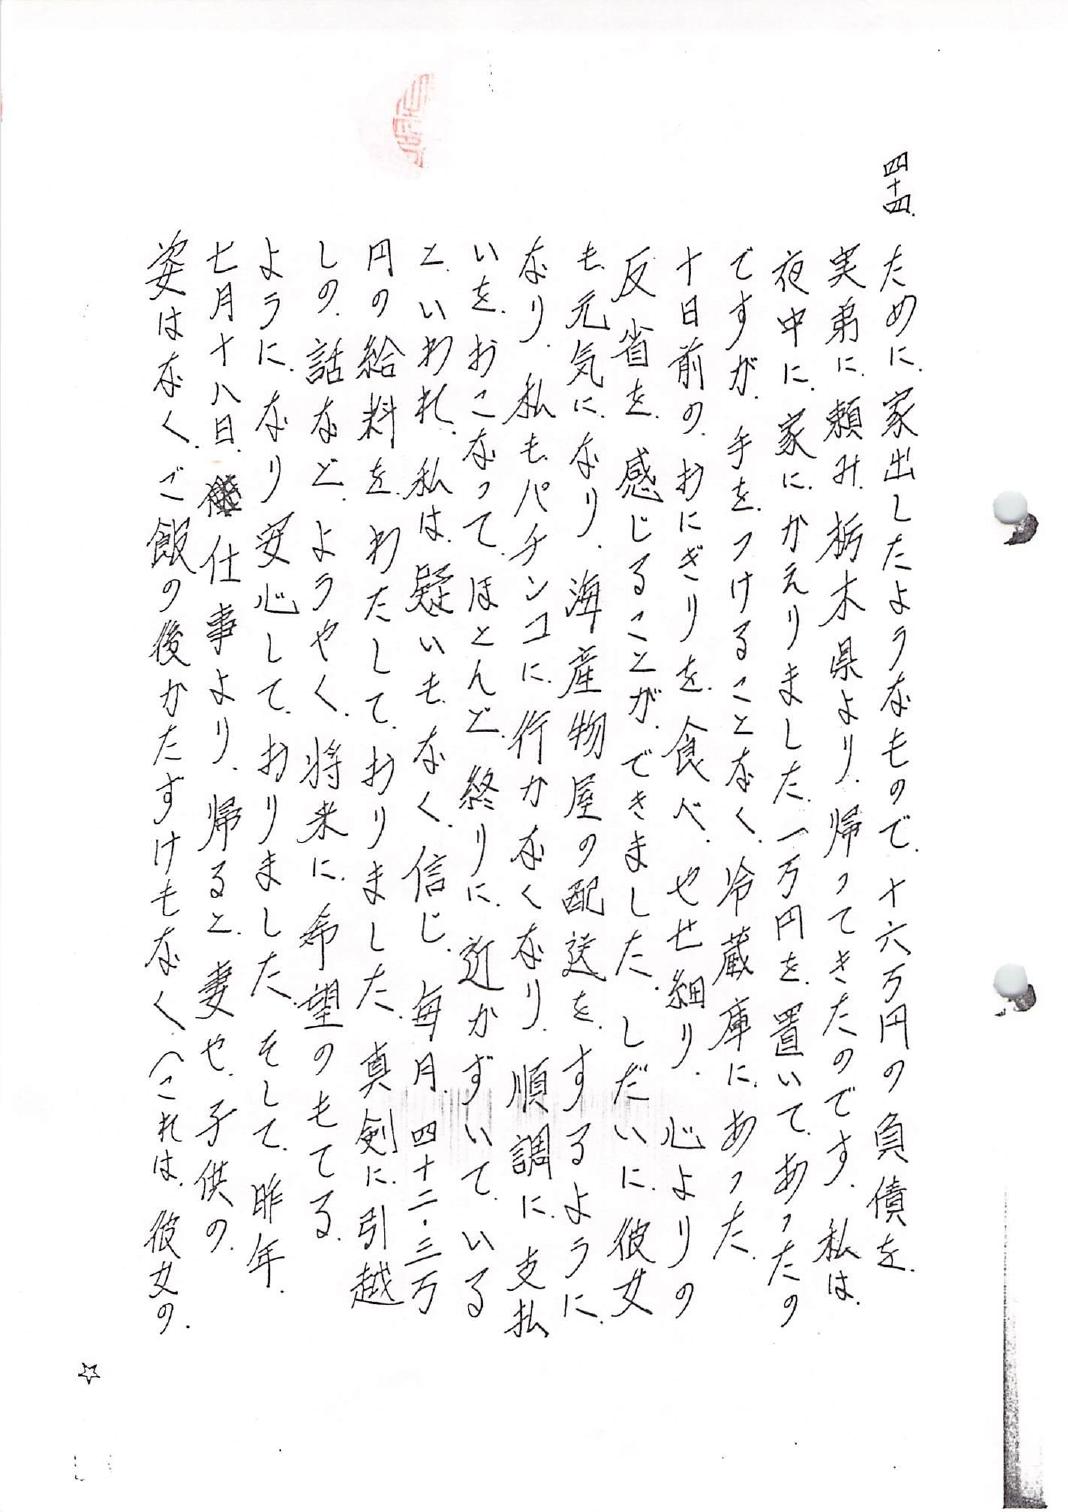 四十四.
ために.家出したようなもので.十六万円の負債を.
実弟に.頼み.栃木県より.帰ってきたのです.私は.
夜中に.家に.かえりました.一万円を.置いて.あったの
ですが.手を.つけることなく.冷蔵庫に.あった.
十日前の.おにぎりを.食べ.やせ細り.心よりの
反省を.感じることが.できました.しだいに.彼女
も.元気に.なり.海産物屋の配送を.するように.
なり.私も.パチンコに.行かなくなり.順調に.支払
いを.おこなって.ほとんど.終りに.近かずいて.いる
と.いわれ.私は.疑いもなく.信じ.毎月.四十二・三万
円の給料を.わたして.おりました.真剣に.引越
しの.話など.ようやく.将来に.希望のもてる.
ように.なり.安心して.おりました.そして.昨年.
七月十八日.仕事より.帰ると.妻や.子供の.
姿はなく.ご飯の後かたずけもなく.(これは.彼女の.
☆